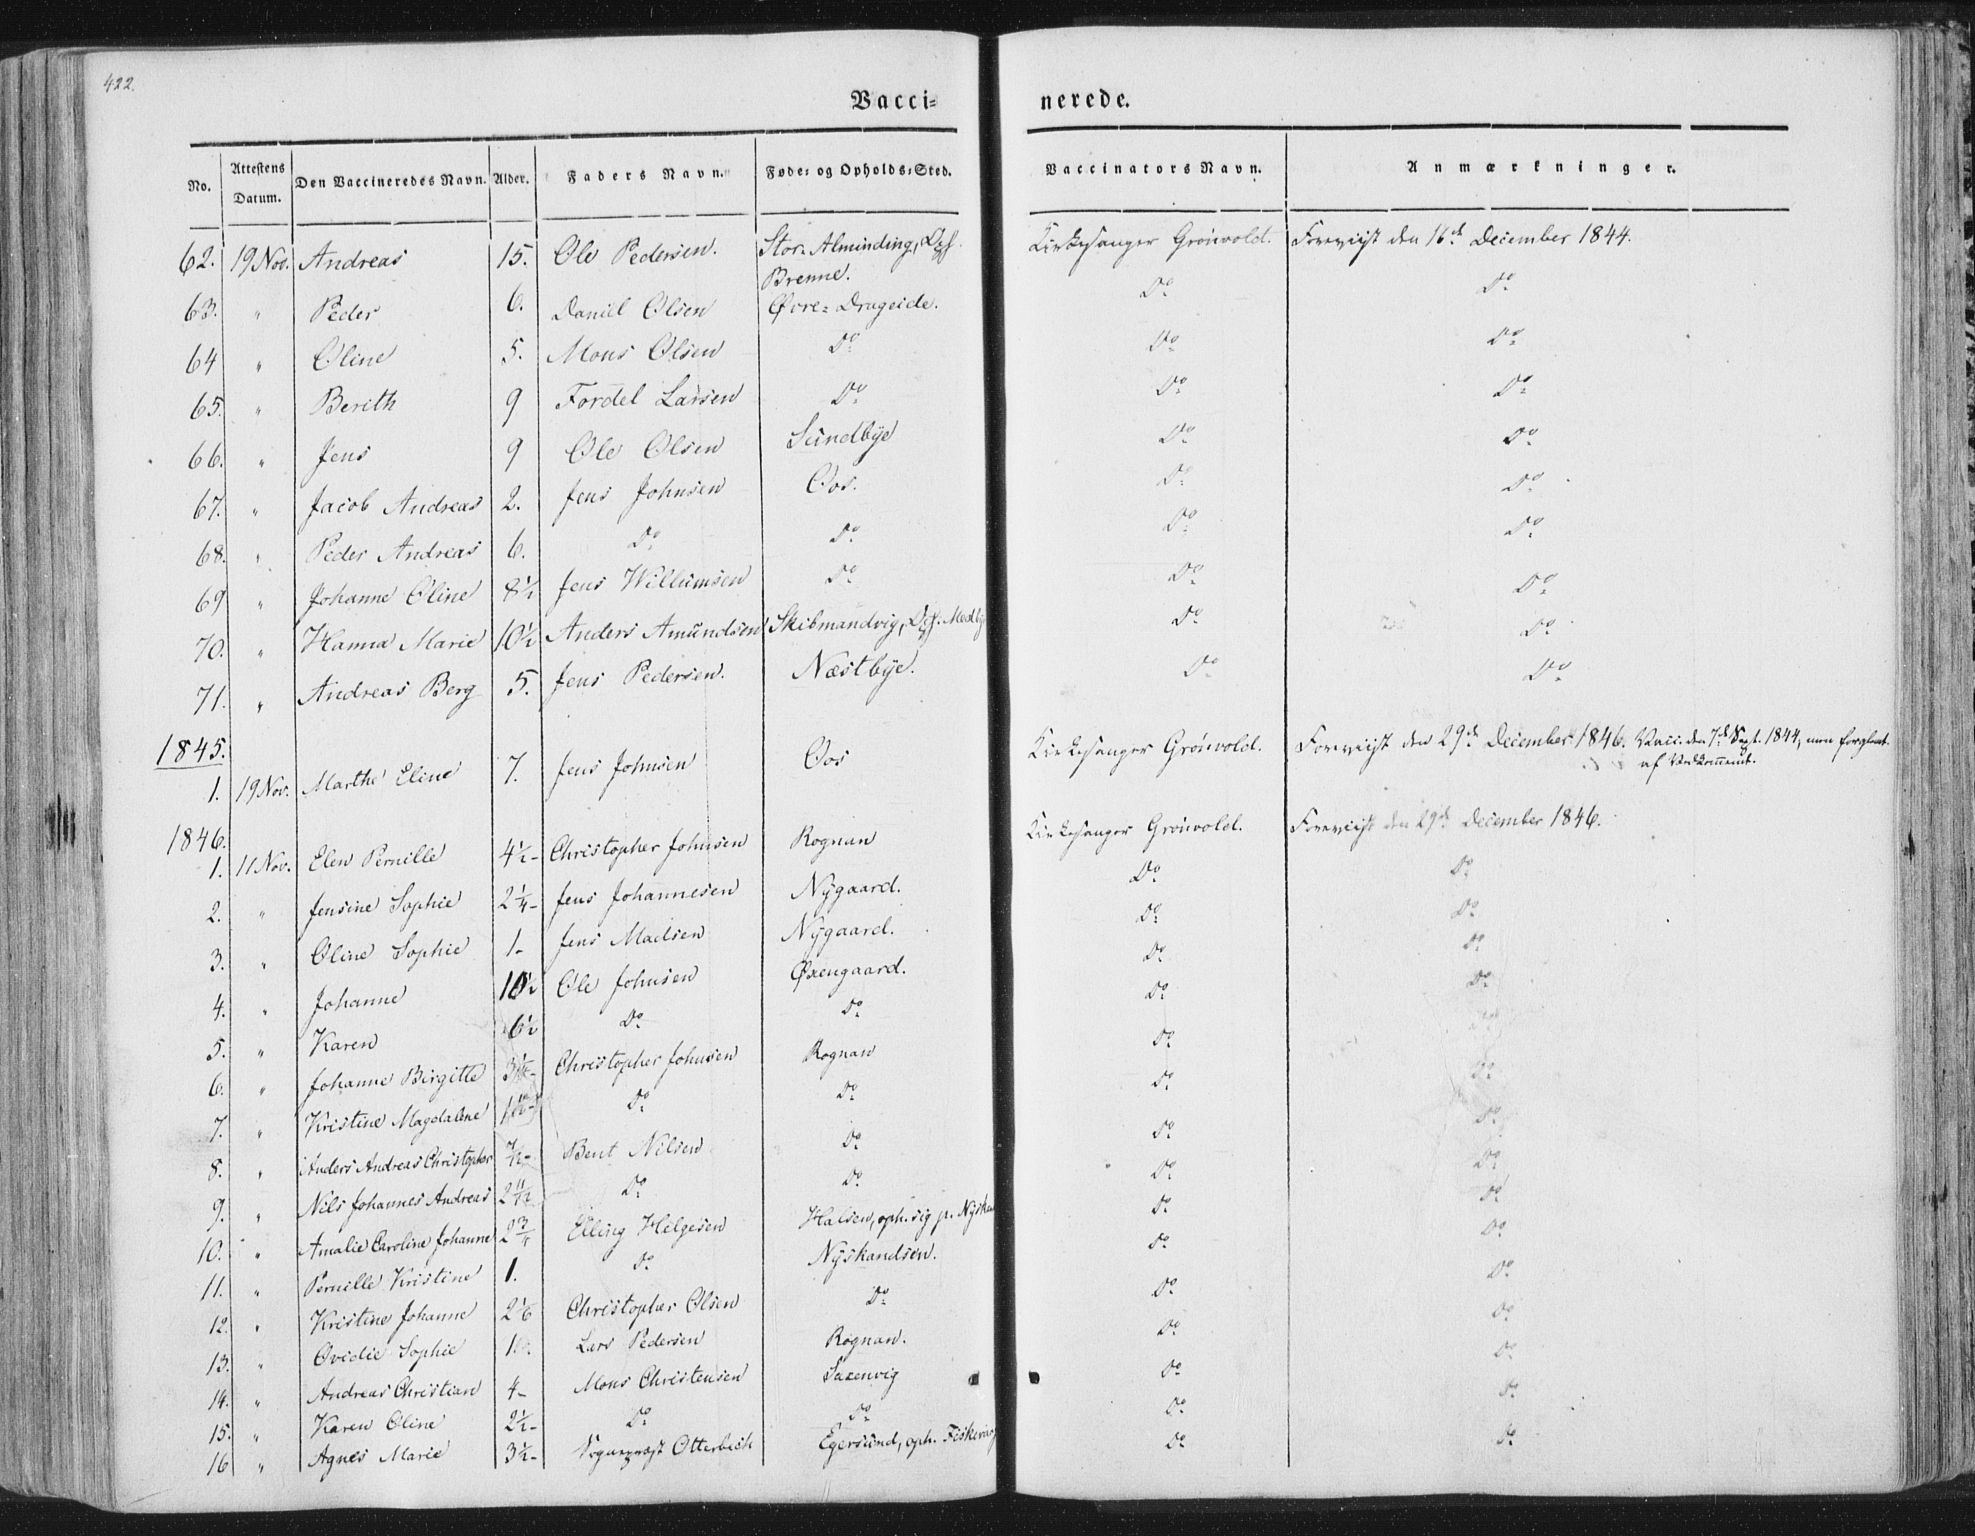 422.
Vacci= nerede.
No. Attestens Datum. Den Vaccineredes Navn. Alder. Faders Navn. Føde= og Opholds=Sted. Vaccinators Navn. Anmærkninger.
62. 19 Nov. Andreas 15. Ole Pedersen. Stor-Alminding, Brenne. Kirkesanger Grönvold. Foreviist den 16de December 1844.
63. " Peder 6. Daniel Olsen Øvre=Drageide. Do Do
64 " Oline 5. Mons Olsen Do Do Do
65. " Berith 9 Fordel Larsen Do Do Do
66. " Jens 9 Ole Olsen Sundbye Do Do
67. " Jacob Andreas 2. Jens Johnsen Oos. Do Do
68. " Peder Andreas 6. Do Do Do Do
69 " Johanne Oline 8½ Jens Willumsen Do Do Do
70. " Hanna Marie 10½ Anders Amundsen Skibmandvig, Do Do
71. " Andreas Berg 5. Jens Pedersen. Næstbye. Do Do
1845.
1. 19 Nov. Marthe Eline 7. Jens Johnsen Oos Kirkesanger Grönvold. Foreviist den 29de December 1846. Vacc. den 7de Sept. 1844, men forglemt af Vedkommende.
1846.
1. 11 Nov. Elen Pernille 4½- Christopher Johnsen Rognan Kirkesanger Grönvold. Foreviist den 29de December 1846.
2. " Jensine Sophie 2¼- Jens Johannesen Nygaard. Do Do
3. " Oline Sophie 1- Jens Madsen Nygaard. Do Do
4. " Johanne 10½ Ole Johnsen Øxengaard. Do Do
5. " Karen 6½ Do Do Do Do
6. " Johanne Birgitte Christopher Johnsen Rognan Do Do
7. " Kristine Magdalene Do Do Do Do
8. " Anders Andreas Christopher 7/12- Bent Nilsen Do Do Do
9. " Nils Johannes Andreas 2 11/12 Do Do Do Do
10. " Amalie Caroline Johanne 2¾ Elling Helgesen Halsen, oph. sig p. Do Do
11. " Pernille Kristine 1. Do Nyskandsen. Do Do
12. " Kristine Johanne 2 1/6 Christopher Olsen Do Do Do
13. " Ovidie Sophie 1. Lars Pedersen Rognan. Do Do
14. " Andreas Christian 4- Mons Christensen Saxenvig Do Do
15. " Karen Oline 2½- Do Do Do Do
16 " Agnes Marie 3½- Sogneprest Otterbech Egersund, oph. Do Do